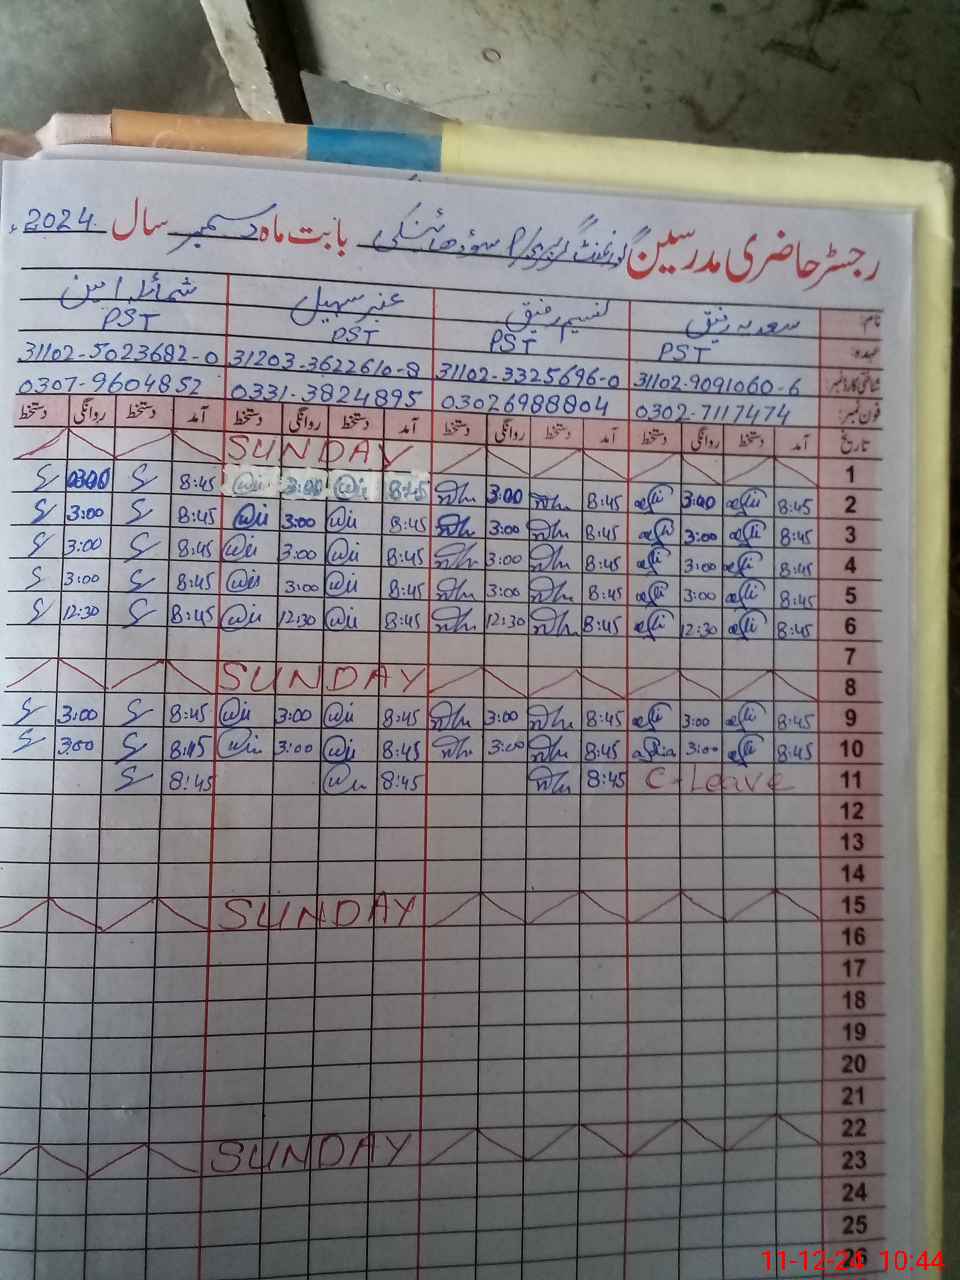 رجسٹر حاضری مدرسین گورنمنٹ گرلز پرائمری بابت ماہ دسمبر سال 2024ء
نام: سعدیہ رفیق نسیم رفیق عنبر سہیل شمائلہ امین
عہدہ: PST PST PST PST
شناختی کارڈ نمبر: 31102-9091060-6 31102-3325696-0 31203-3622610-8 31102-5023682-0
فون نمبر: 0302-7117474 03026988804 0331-3824895 0307-9604852
تاریخ آمد دستخط روانگی دستخط آمد دستخط روانگی دستخط آمد دستخط روانگی دستخط آمد دستخط روانگی دستخط
1 SUNDAY
2 8:45 3:00 8:45 3:00 8:45 3:00 8:45 03:00
3 8:45 3:00 8:45 3:00 8:45 3:00 8:45 3:00
4 8:45 3:00 8:45 3:00 8:45 3:00 8:45 3:00
5 8:45 3:00 8:45 3:00 8:45 3:00 8:45 3:00
6 8:45 12:30 8:45 12:30 8:45 12:30 8:45 12:30
7
8 SUNDAY
9 8:45 3:00 8:45 3:00 8:45 3:00 8:45 3:00
10 8:45 3:00 8:45 3:00 8:45 3:00 8:45 3:00
11 C-Leave 8:45 8:45 8:45
12
13
14
15 SUNDAY
16
17
18
19
20
21
22
23 SUNDAY
24
25
26
11-12-24 10:44